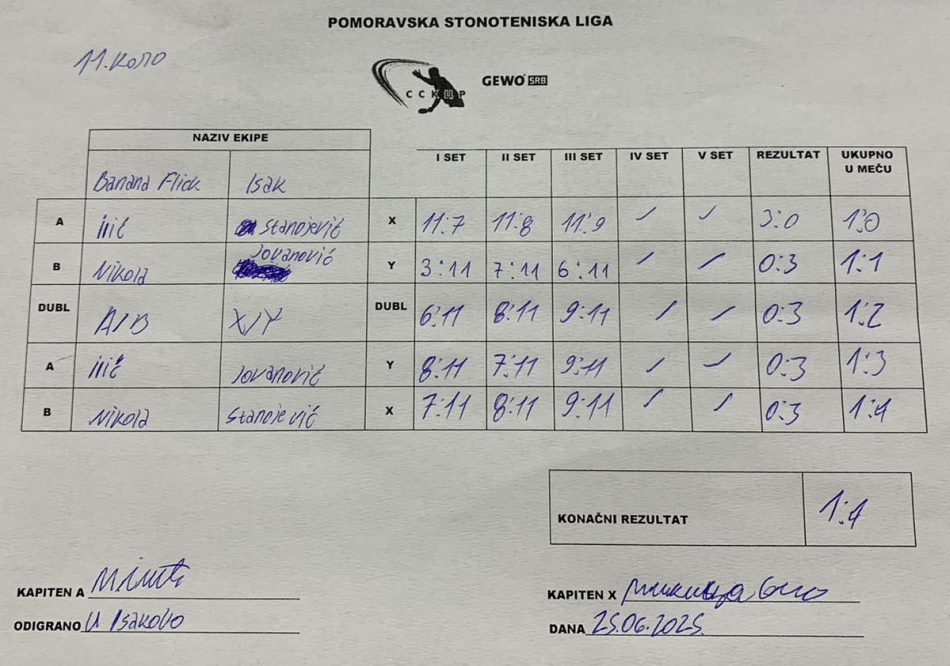 POMORAVSKA STONOTENISKA LIGA
11. KOLO
ССКЦР GEWO SRB
NAZIV EKIPE
I SET II SET III SET IV SET V SET REZULTAT UKUPNO U MEČU
Banana Flick Isak
A Ilić Stanojević X 11:7 11:8 11:9 / / 3:0 1:0
B Nikola Jovanović Y 3:11 7:11 6:11 / / 0:3 1:1
DUBL A/B X/Y DUBL 6:11 8:11 9:11 / / 0:3 1:2
A Ilić Jovanović Y 8:11 7:11 9:11 / / 0:3 1:3
B Nikola Stanojević X 7:11 8:11 9:11 / / 0:3 1:4
KONAČNI REZULTAT 1:4
KAPITEN A
KAPITEN X
ODIGRANO U Isakovo
DANA 25.06.2025.